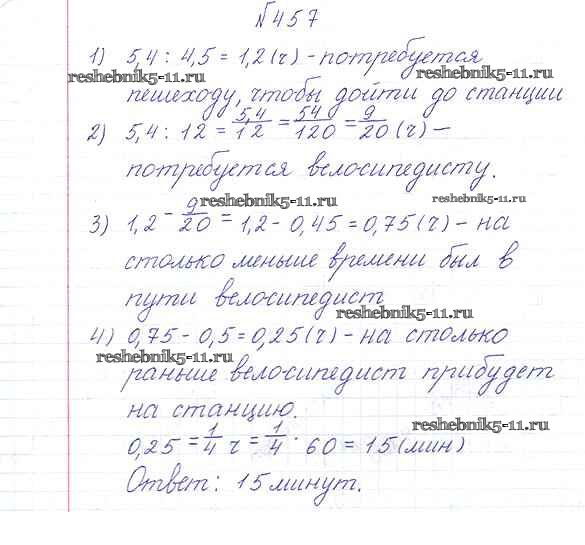 №457
1) 5,4 : 4,5 = 1,2 (ч) - потребуется
reshebnik5-11.ru reshebnik5-11.ru
пешеходу, чтобы дойти до станции
2) 5,4 : 12 = 5,4/12 = 54/120 = 9/20 (ч) –
потребуется велосипедисту.
reshebnik5-11.ru reshebnik5-11.ru
3) 1,2 - 9/20 = 1,2 - 0,45 = 0,75 (ч) – на
столько меньше времени был в
пути велосипедист
reshebnik5-11.ru
4) 0,75 - 0,5 = 0,25 (ч) – на столько
reshebnik5-11.ru
раньше велосипедист прибудет
на станцию.
reshebnik5-11.ru
0,25 = 1/4 ч = 1/4 · 60 = 15 (мин)
Ответ: 15 минут.